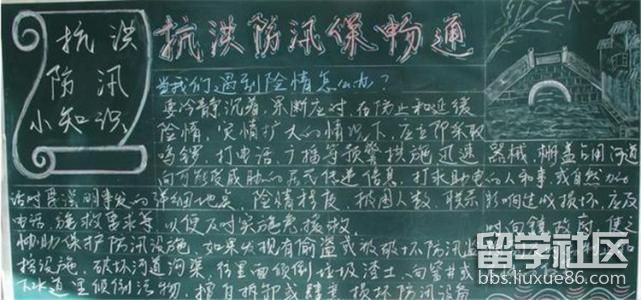 抗洪
防汛
小知识
抗洪防汛保畅通
当我们遇到险情怎么办?
要冷静沉着,果断应对,在防止和延缓
险情,灾情扩大的情况下,应立即采取
鸣锣,打电话,广播等预警措施,迅速
向可能受威胁的居民传递信息,打求助电
话时要说明事发的详细地点,险情程度,被困人数,联系
电话,施救要求等,以便及时实施免援救.
协助保护防汛设施,如果发现有偷盗或被破坏防汛监
控设施,破坏河道沟渠,往里面倾倒垃圾渣土,向窨井或
下水道里倾倒污物,擅自拆卸或肆意损坏防汛设备
器械,占用河道
的人和事,或自然
影响造成损坏,应及
留学社区
bbs.liuxue86.com